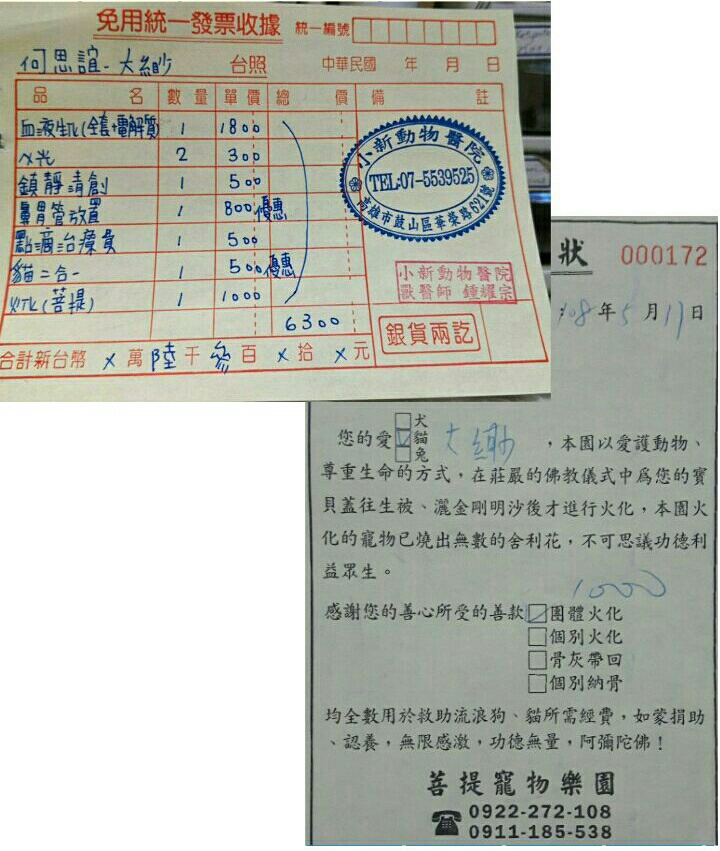 免用統一發票收據 統一編號
何思誼-大緲 台照 中華民國 年 月 日
品名 數量 單價 總價 備註
血液生化(全套+電解質) 1 1800
X光 2 300
鎮靜清創 1 500
鼻胃管放置 1 800 優惠
點滴治療費 1 500
貓二合一 1 500 優惠
火化(菩提) 1 1000
6300
合計新台幣 X 萬 陸 千 參 百 X 拾 X 元
小新動物醫院
TEL:07-5539525
高雄市鼓山區華榮路621號
小新動物醫院
獸醫師 鍾耀宗
銀貨兩訖
狀 000172
108年5月17日
您的愛 犬 貓 兔 大緲 ,本園以愛護動物、
尊重生命的方式,在莊嚴的佛教儀式中為您的寶
貝蓋往生被、灑金剛明沙後才進行火化,本園火
化的寵物已燒出無數的舍利花,不可思議功德利
益眾生。
1000
感謝您的善心所受的善款 團體火化
個別火化
骨灰帶回
個別納骨
均全數用於救助流浪狗、貓所需經費,如蒙捐助
、認養,無限感激,功德無量,阿彌陀佛!
菩提寵物樂園
0922-272-108
0911-185-538